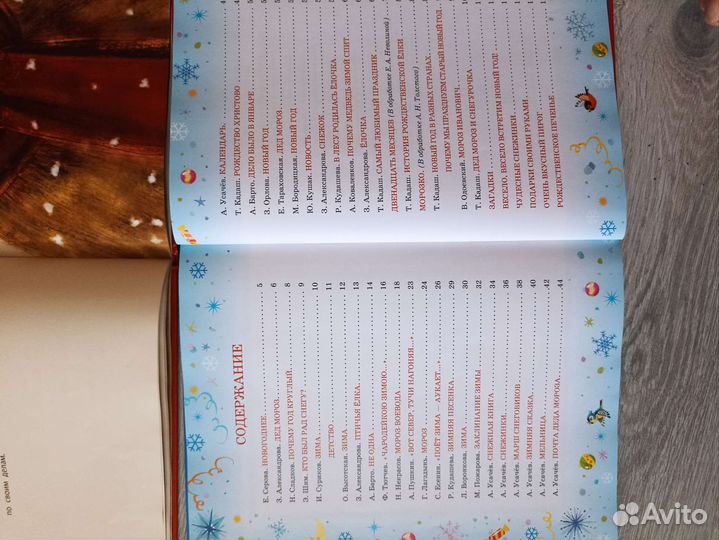 СОДЕРЖАНИЕ
Е. Серова. НОВОГОДНЕЕ 5
З. Александрова. ДЕД МОРОЗ 6
Н. Сладков. ПОЧЕМУ ГОД КРУГЛЫЙ 8
Э. Шим. КТО БЫЛ РАД СНЕГУ? 9
И. Суриков. ЗИМА 10
ДЕТСТВО 11
О. Высотская. ЗИМА 12
З. Александрова. ПТИЧЬЯ ЁЛКА 13
А. Барто. НЕ ОДНА 14
Ф. Тютчев. «ЧАРОДЕЙКОЮ ЗИМОЮ...» 16
Н. Некрасов. МОРОЗ-ВОЕВОДА 18
А. Пушкин. «ВОТ СЕВЕР, ТУЧИ НАГОНЯЯ...» 23
Г. Лагздынь. МОРОЗ 24
С. Есенин. «ПОЁТ ЗИМА — АУКАЕТ...» 26
Р. Кудашева. ЗИМНЯЯ ПЕСЕНКА 29
Л. Воронкова. ЗИМА 30
М. Пожарова. ЗАКЛИНАНИЕ ЗИМЫ 32
А. Усачёв. СНЕЖНАЯ КНИГА 34
А. Усачёв. СНЕЖИНКИ 36
А. Усачёв. МАРШ СНЕГОВИКОВ 38
А. Усачёв. ЗИМНЯЯ СКАЗКА 40
А. Усачёв. МЕЛЬНИЦА 42
А. Усачёв. ПОЧТА ДЕДА МОРОЗА 44
А. Усачёв. КАЛЕНДАРЬ
Т. Кадаш. РОЖДЕСТВО ХРИСТОВО
А. Барто. ДЕЛО БЫЛО В ЯНВАРЕ
З. Орлова. НОВЫЙ ГОД
Е. Тараховская. ДЕД МОРОЗ
М. Бородицкая. НОВЫЙ ГОД
Ю. Кушак. НОВОСТЬ
З. Александрова. СНЕЖОК
Р. Кудашева. В ЛЕСУ РОДИЛАСЬ ЁЛОЧКА
А. Коваленков. ПОЧЕМУ МЕДВЕДЬ ЗИМОЙ СПИТ
З. Александрова. ЁЛОЧКА
Т. Кадаш. САМЫЙ ЛЮБИМЫЙ ПРАЗДНИК
ДВЕНАДЦАТЬ МЕСЯЦЕВ (В обработке Е. А. Неволиной)
Т. Кадаш. ИСТОРИЯ РОЖДЕСТВЕНСКОЙ ЁЛКИ
МОРОЗКО. (В обработке А. Н. Толстого)
Т. Кадаш. НОВЫЙ ГОД В РАЗНЫХ СТРАНАХ.
ПОЧЕМУ МЫ ПРАЗДНУЕМ СТАРЫЙ НОВЫЙ ГОД
В. Одоевский. МОРОЗ ИВАНОВИЧ
Т. Кадаш. ДЕД МОРОЗ И СНЕГУРОЧКА
ЗАГАДКИ
ВЕСЕЛО, ВЕСЕЛО ВСТРЕТИМ НОВЫЙ ГОД!
ЧУДЕСНЫЕ СНЕЖИНКИ
ПОДАРКИ СВОИМИ РУКАМИ
ОЧЕНЬ ВКУСНЫЙ ПИРОГ
РОЖДЕСТВЕНСКОЕ ПЕЧЕНЬЕ
по своим делам.
Avito